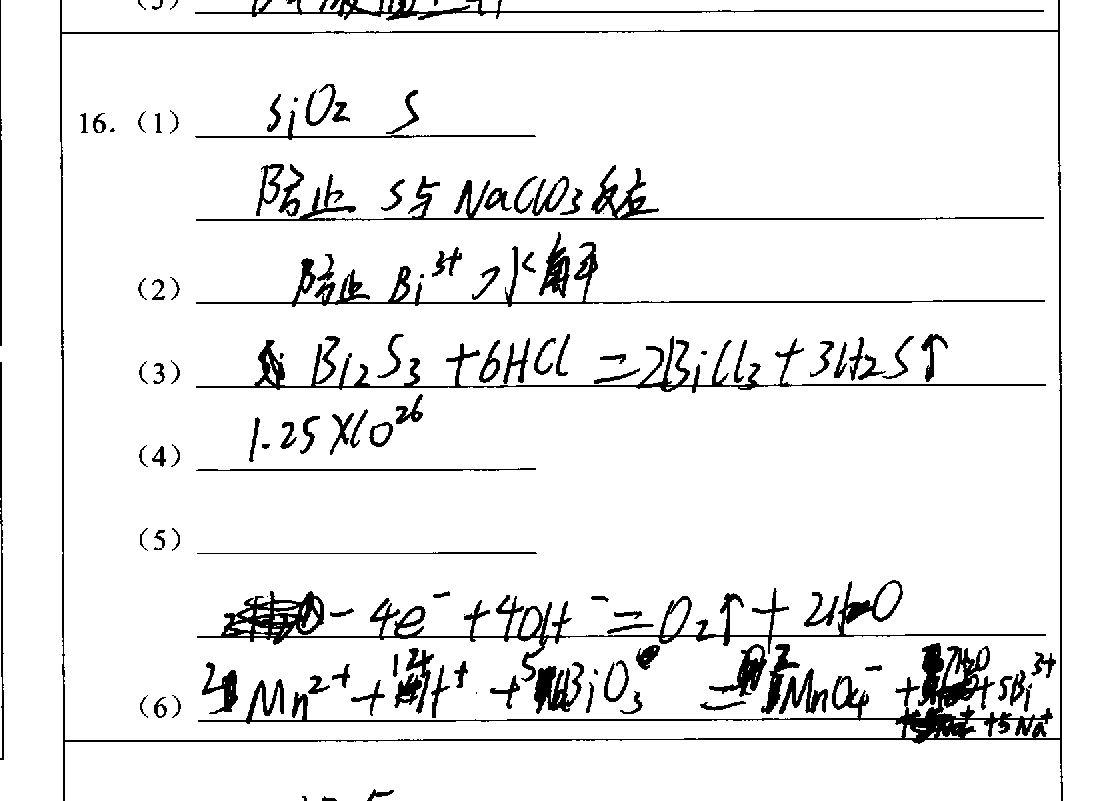 16.（1） SiO₂ S
防止 S与 NaClO₃ 反应
（2） 防止 Bi³⁺ 水解
（3） Bi₂S₃ +6HCl =2BiCl₃ +3H₂S↑
（4） 1.25×10²⁶
（5）
-4e⁻ +4OH⁻ =O₂↑+2H₂O
（6） 2Mn²⁺ + H⁺ +5 BiO₃ = 2MnO₄⁻ +7H₂O+5Bi³⁺
+5Na⁺